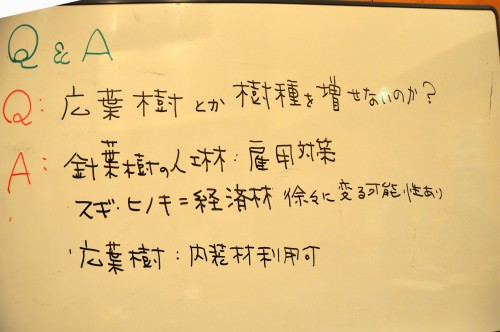 Q & A
Q: 広葉樹とか樹種を増せないのか?
A: 針葉樹の人工林:雇用対策
スギ・ヒノキ=経済林 徐々に変る可能性あり
広葉樹:内装材利用可